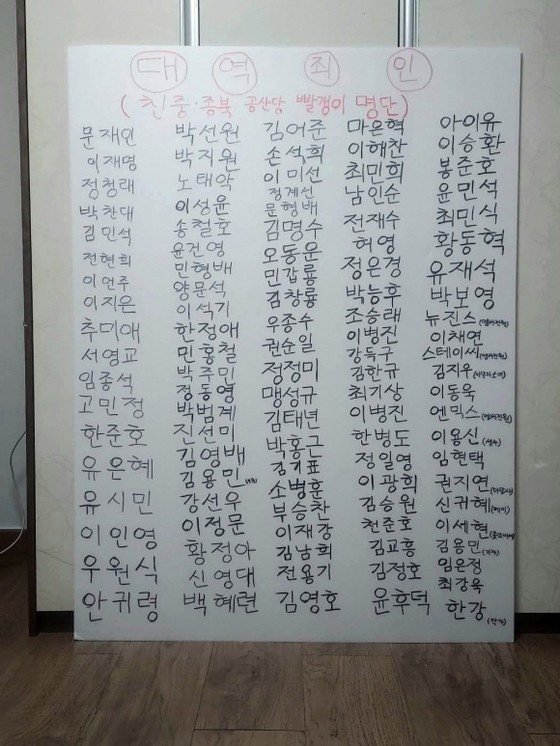 대역죄인
(친중·종북 공산당 빨갱이 명단)
문재인
이재명
정청래
박찬대
김민석
전현희
이언주
이지은
추미애
서영교
임종석
고민정
한준호
유은혜
유시민
이인영
우원식
안귀령
박선원
박지원
노태악
이성윤
송철호
윤건영
민형배
양문석
이석기
한정애
민홍철
박주민
정동영
박범계
진선미
김영배
김용민
강선우
이정문
황정아
신영대
백혜련
김어준
손석희
이미선
정계선
문형배
김명수
오동운
민갑룡
김창룡
우종수
권순일
정정미
맹성규
김태년
박홍근
김기표
소병훈
부승찬
이재강
김남희
전용기
김영호
마은혁
이해찬
최민희
남인순
전재수
허영
정은경
박능후
조승래
이병진
강득구
김한규
최기상
이병진
한병도
정일영
이광희
김승원
천준호
김교흥
김정호
윤후덕
아이유
이승환
봉준호
윤민석
최민식
황동혁
유재석
박보영
뉴진스(멤버전원)
이채연
스테이씨(멤버전원)
김지우(이달의소녀)
이동욱
엔믹스(멤버전원)
이용신(성우)
임현택
권지연
신귀혜
이세현
김용민
임은정
최강욱
한강(작가)